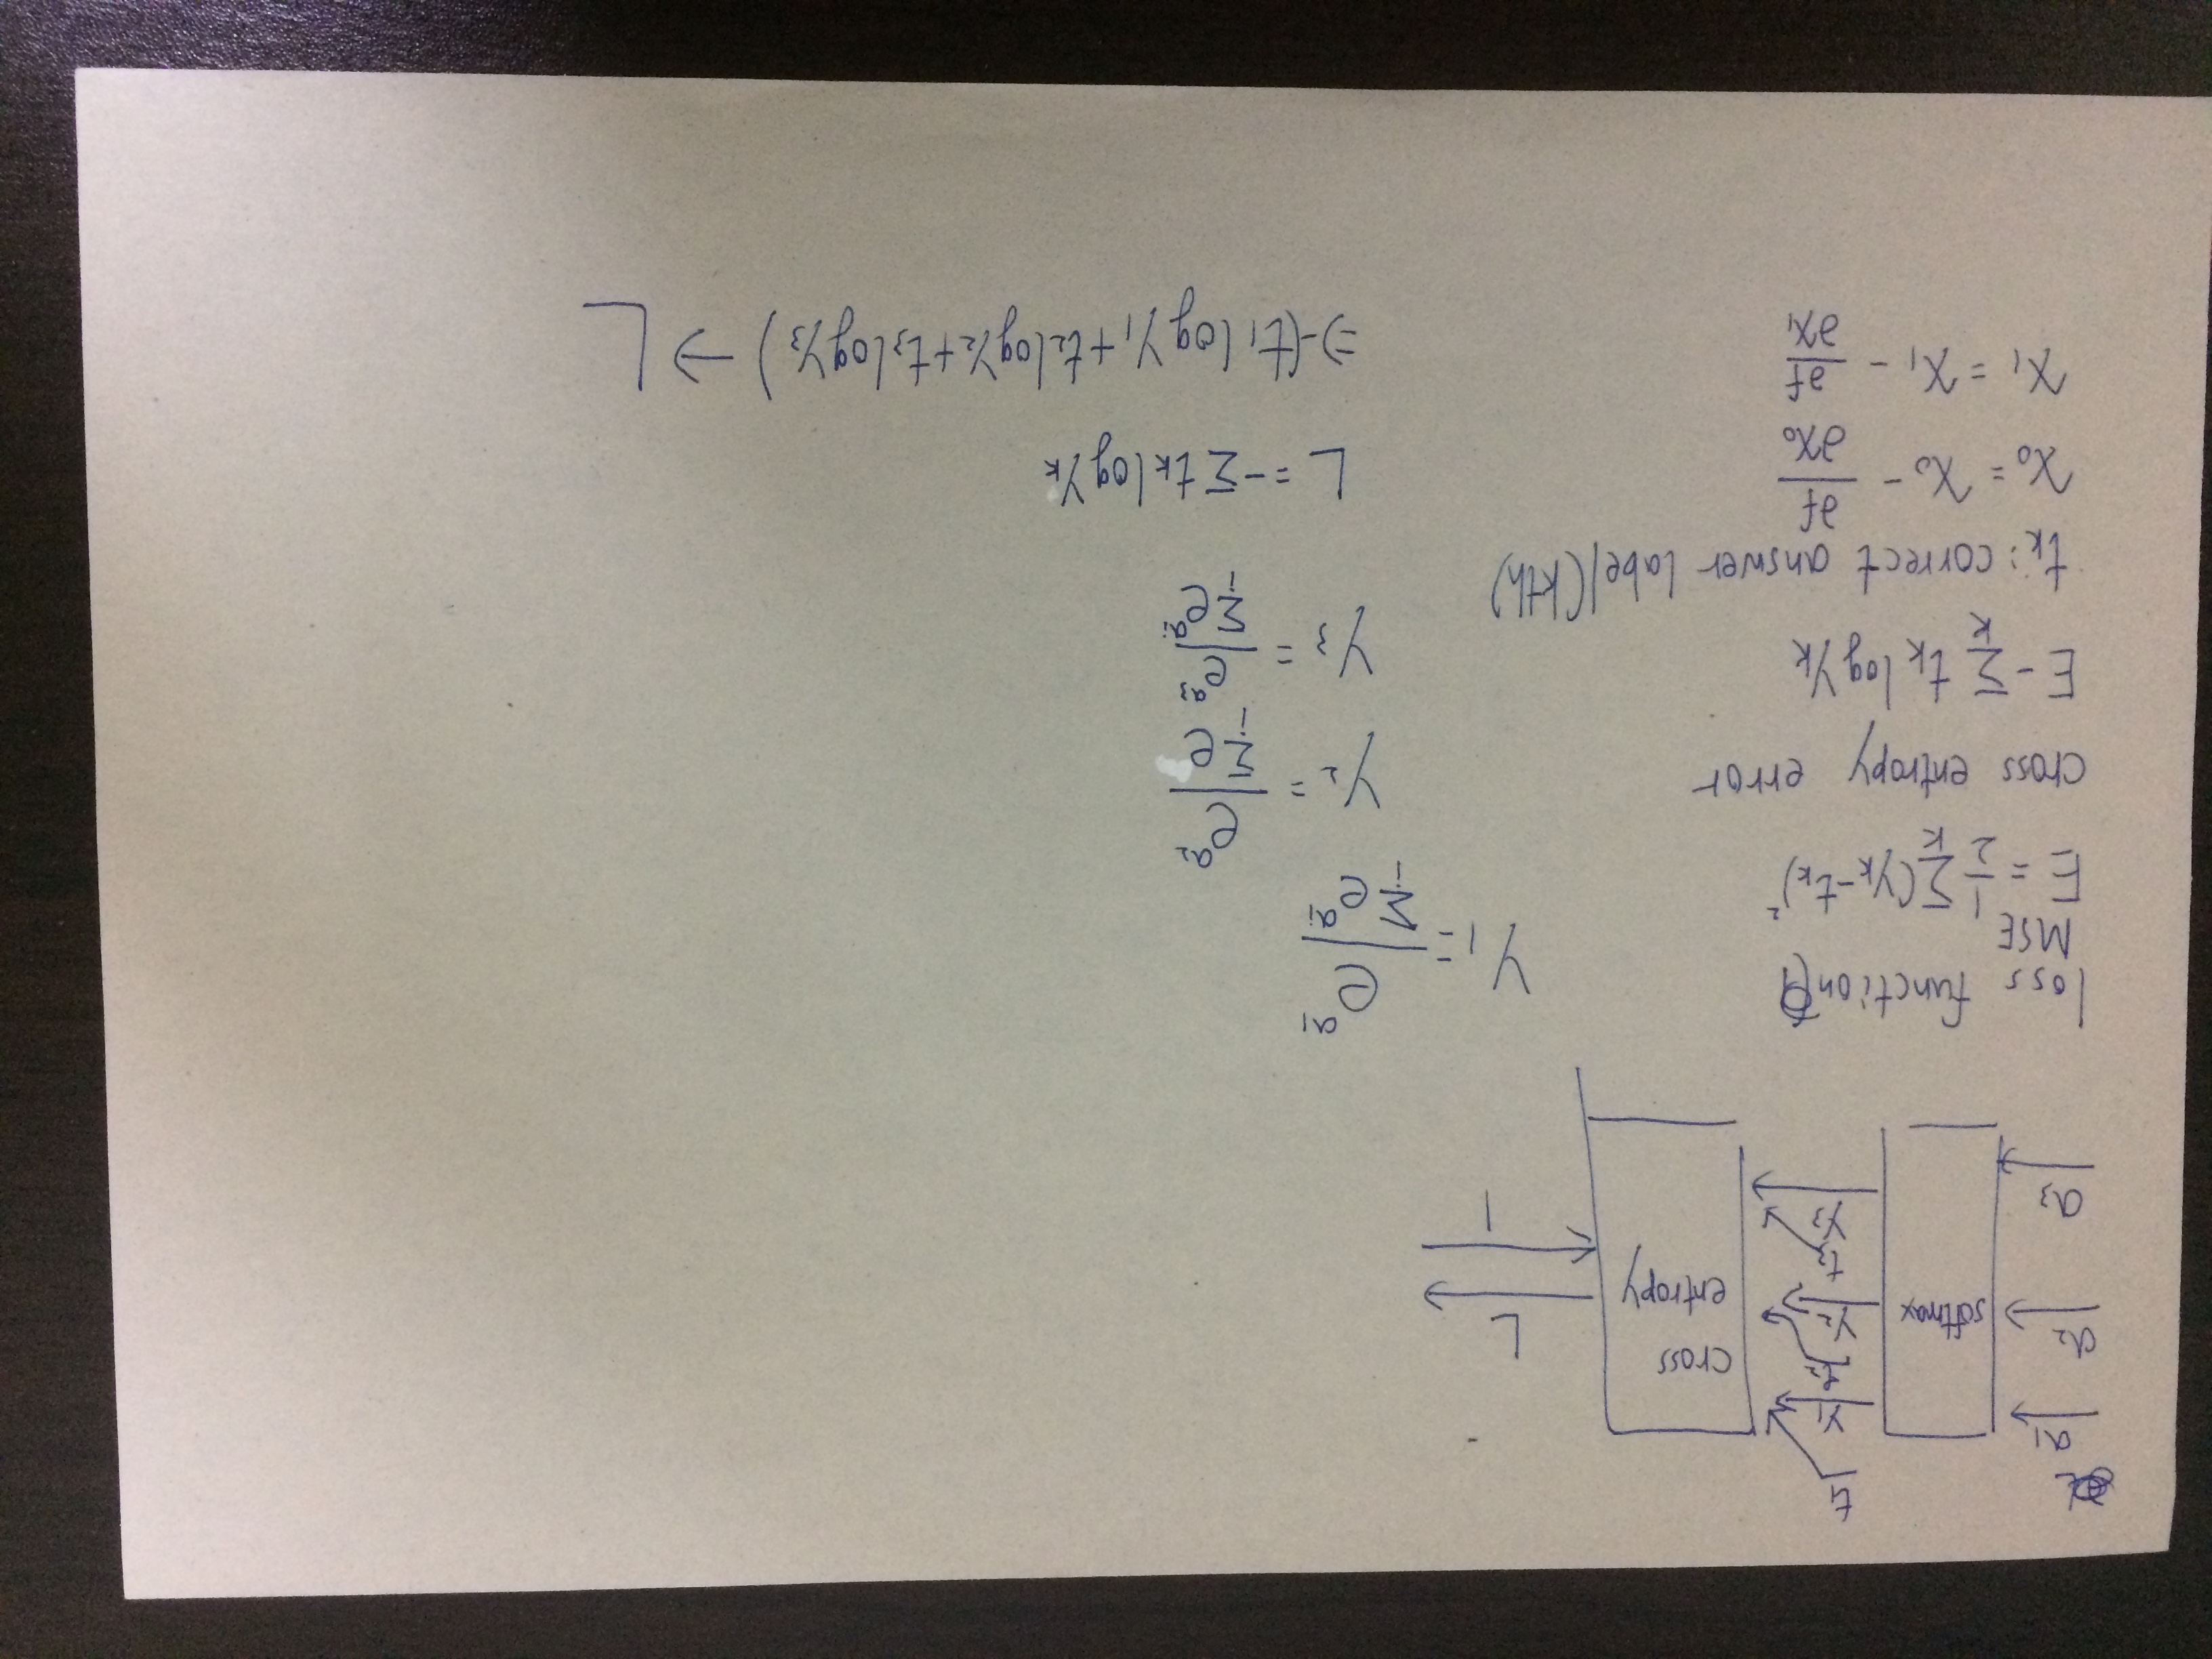 t₁
a₁
y₁
t₂
a₂
softmax
y₂
cross
entropy
L
t₃
y₃
a₃
1
loss function
MSE
E = 1/2 Σₖ (yₖ - tₖ)²
cross entropy error
E - Σₖ tₖ log yₖ
tₖ: correct answer label (kth)
x₀ = x₀ - ∂f/∂x₀
x₁ = x₁ - ∂f/∂x₁
y₁ = e^a₁ / Σᵢ e^aᵢ
y₂ = e^a₂ / Σᵢ e
y₃ = e^a₃ / Σᵢ e^aᵢ
L = -Σ tₖ log yₖ
⇒ -(t₁ log y₁ + t₂ log y₂ + t₃ log y₃) → L